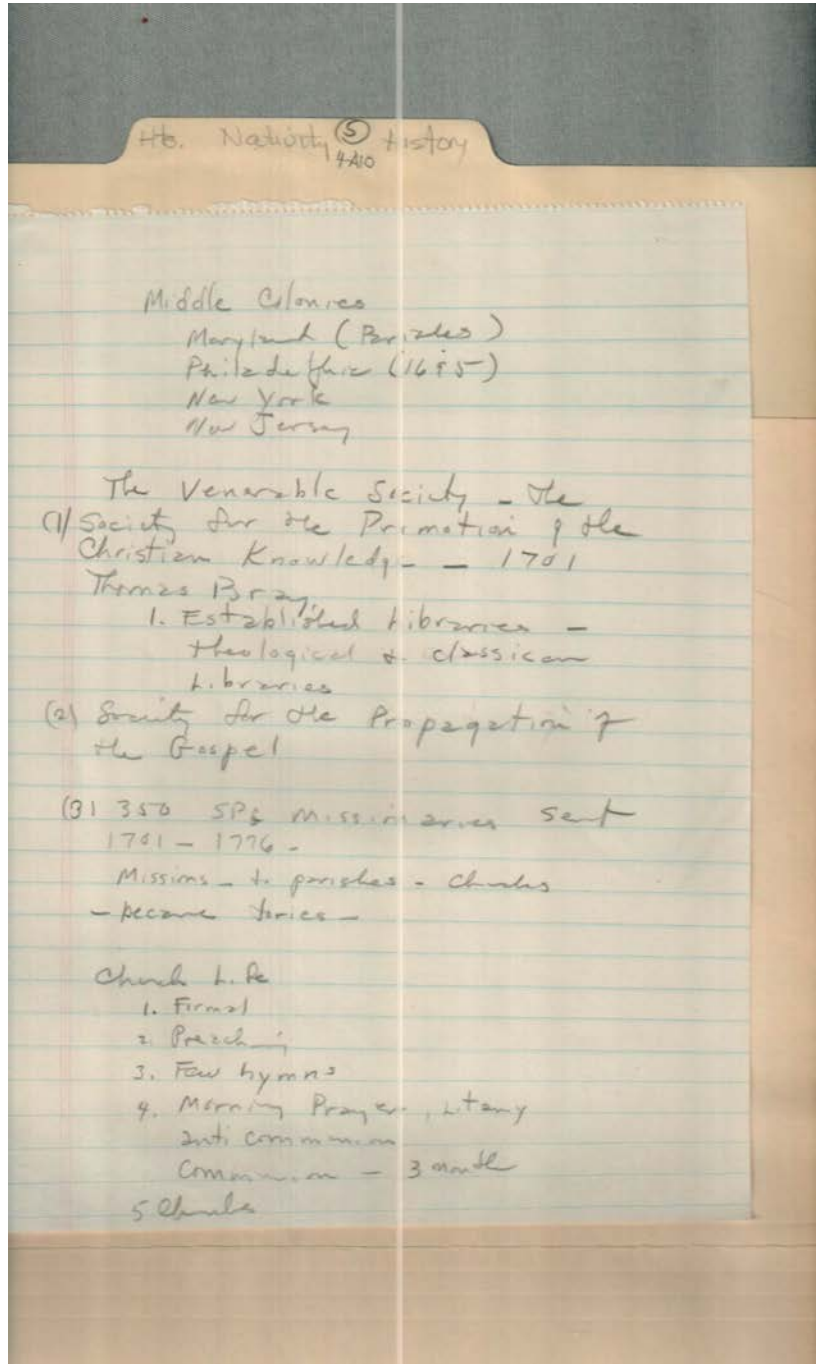 Hb. Nativity ⑤ History
4-A10
Middle Colonies
Maryland (Parishes)
Philadelphia (1695)
New York
New Jersey
The Venerable Society - the
(1) Society for the Promotion of the
Christian Knowledge - 1701
Thomas Bray,
1. Established Libraries -
theological &
Libraries
(2) Society for the Propagation of
the Gospel
(3) 350 SPG Missionaries sent
1701 - 1776 -
Missions - to parishes - Churches
- became tories -
Church Life
1. Formal
2. Preaching
3. Few hymns
4. Morning Prayer, Litany
anti communion
Communion - 3 month
5 Churches